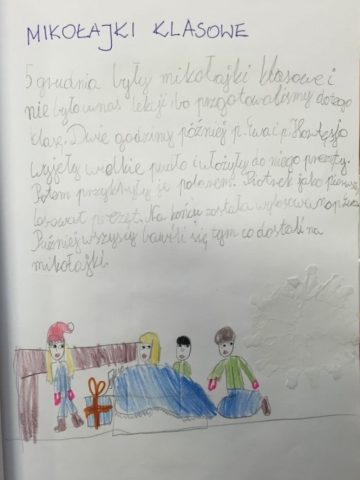 MIKOŁAJKI KLASOWE
5 grudnia były mikołajki klasowe i
nie było u nas lekcji, bo przygotowaliśmy do tego
klasę. Dwie godziny później p. Ewa i p.
wyjęły wielkie pudło i włożyły do niego prezęty.
Potem przykryły je polarem. Piotrek jako pierwszy
losował prezęt. Na końcu została wylosowana
Puźniej wszyscy bawili się tym co dostali na
mikołajki.